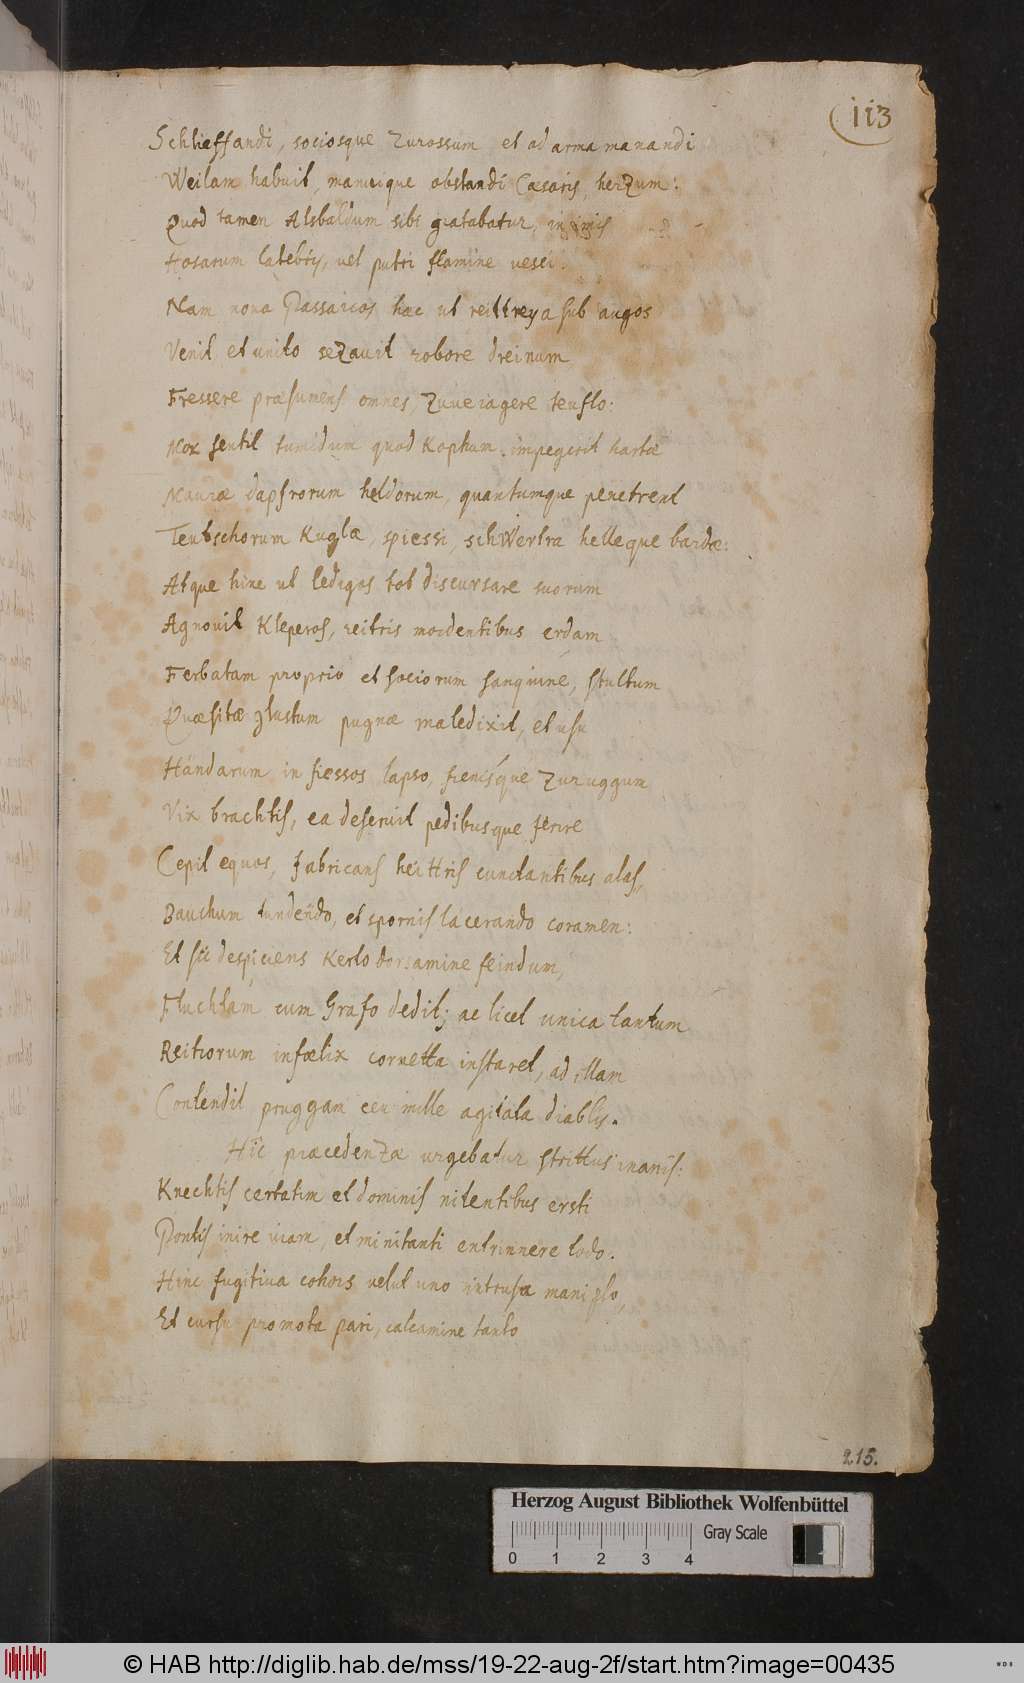 113
Schlieffandi, sociosque Zurossum et ad arma manandi
Weilam habuit, manuique obstandi Cæsaris, herZum:
Quod tamen Alsbaldum sibi gratabatur, in imis
Hosarum latebris, vel putri flamine vesci.
Nam nona Passaicos hac ut reittreya sub augos
Venit et unito seZavit robore dreinum
Fressere præsumens omnes, Zuueriagere teuflo:
Mox sentit tumidum quod Kophum impegerit hartæ
Mauræ dapfrorum heldorum, quantumque penetrent
Teutschorum Kuglæ, spiessi, schWertra helleque bardæ:
Atque hinc ut ledigos tot discursare suorum
Agnovit Kleperos, reitris mordentibus erdam
Ferbatam proprio et sociorum sanguine, stultum
Quæsitæ glustum pugnæ maledixit, et usu
Händarum in fiessos lapso, frenisque Zuruggum
Vix brachtis, ea deseruit pedibusque ferire
Cepit equos, fabricans heittris cunctantibus alas,
Bauchum tundendo, et spornis lacerando coramen:
Et sic despiciens Kerlo dorsamine feindum,
Fluchtam cum Grafo dedit; ac licet unica tantum
Reitrorum infœlix cornetta instaret, ad illam
Contendit pruggam ceu mille agitata diablis.
Hic præcedenZæ urgebatur strittus inanis:
Knechtis certatim et dominis nitentibus ersti
Pontis inire viam, et minitanti entrinnere todo.
Hinc fugitiva cohors velut uno intrusa maniplo,
Et cursu promota pari, calcamine tanto
215.
Herzog August Bibliothek Wolfenbüttel
Gray Scale
0 1 2 3 4
© HAB http://diglib.hab.de/mss/19-22-aug-2f/start.htm?image=00435